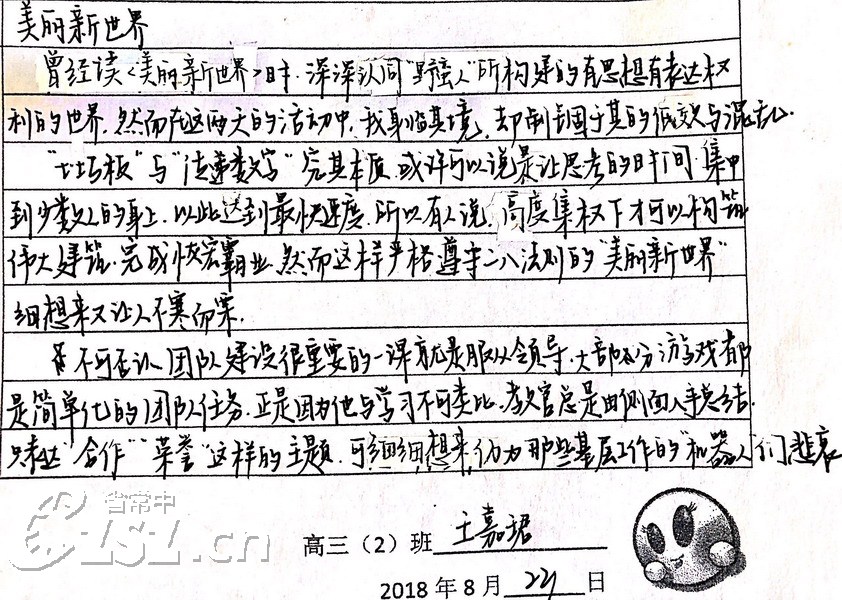 美丽新世界
曾经读<美丽新世界>时.深深认同"野蛮人"所构建的有思想有表达权
利的世界.然而在这两天的活动中,我身临其境,却制锢于其的低效与混乱.
"七巧板"与"传递数字"究其本质.或许可以说是让思考的时间.集中
到少数人的身上.以此达到最快速度.所以有人说.高度集权下才可以构筑
伟大建筑.完成恢宏霸业.然而这样严格遵守二八法则的"美丽新世界"
细想来又让人不寒而栗.
不可否认.团队建设很重要的一课就是服从领导.大部分游戏都
是简单化的团队任务.正是因为他与学习不可类比.教官总是由侧面入手总结.
只表达"合作""荣誉"这样的主题.可细细想来,仍为那些基层工作的"机器人"们悲哀
省常中
CZSLSZ.cn
高三（2）班 王嘉珺
2018 年 8 月 22 日